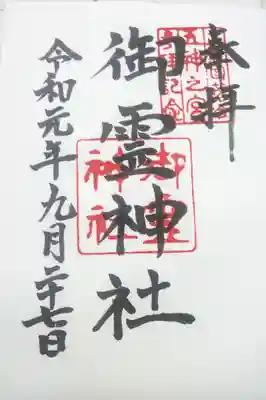 奉拝
御霊神社
令和元年九月二十七日
御霊
神社